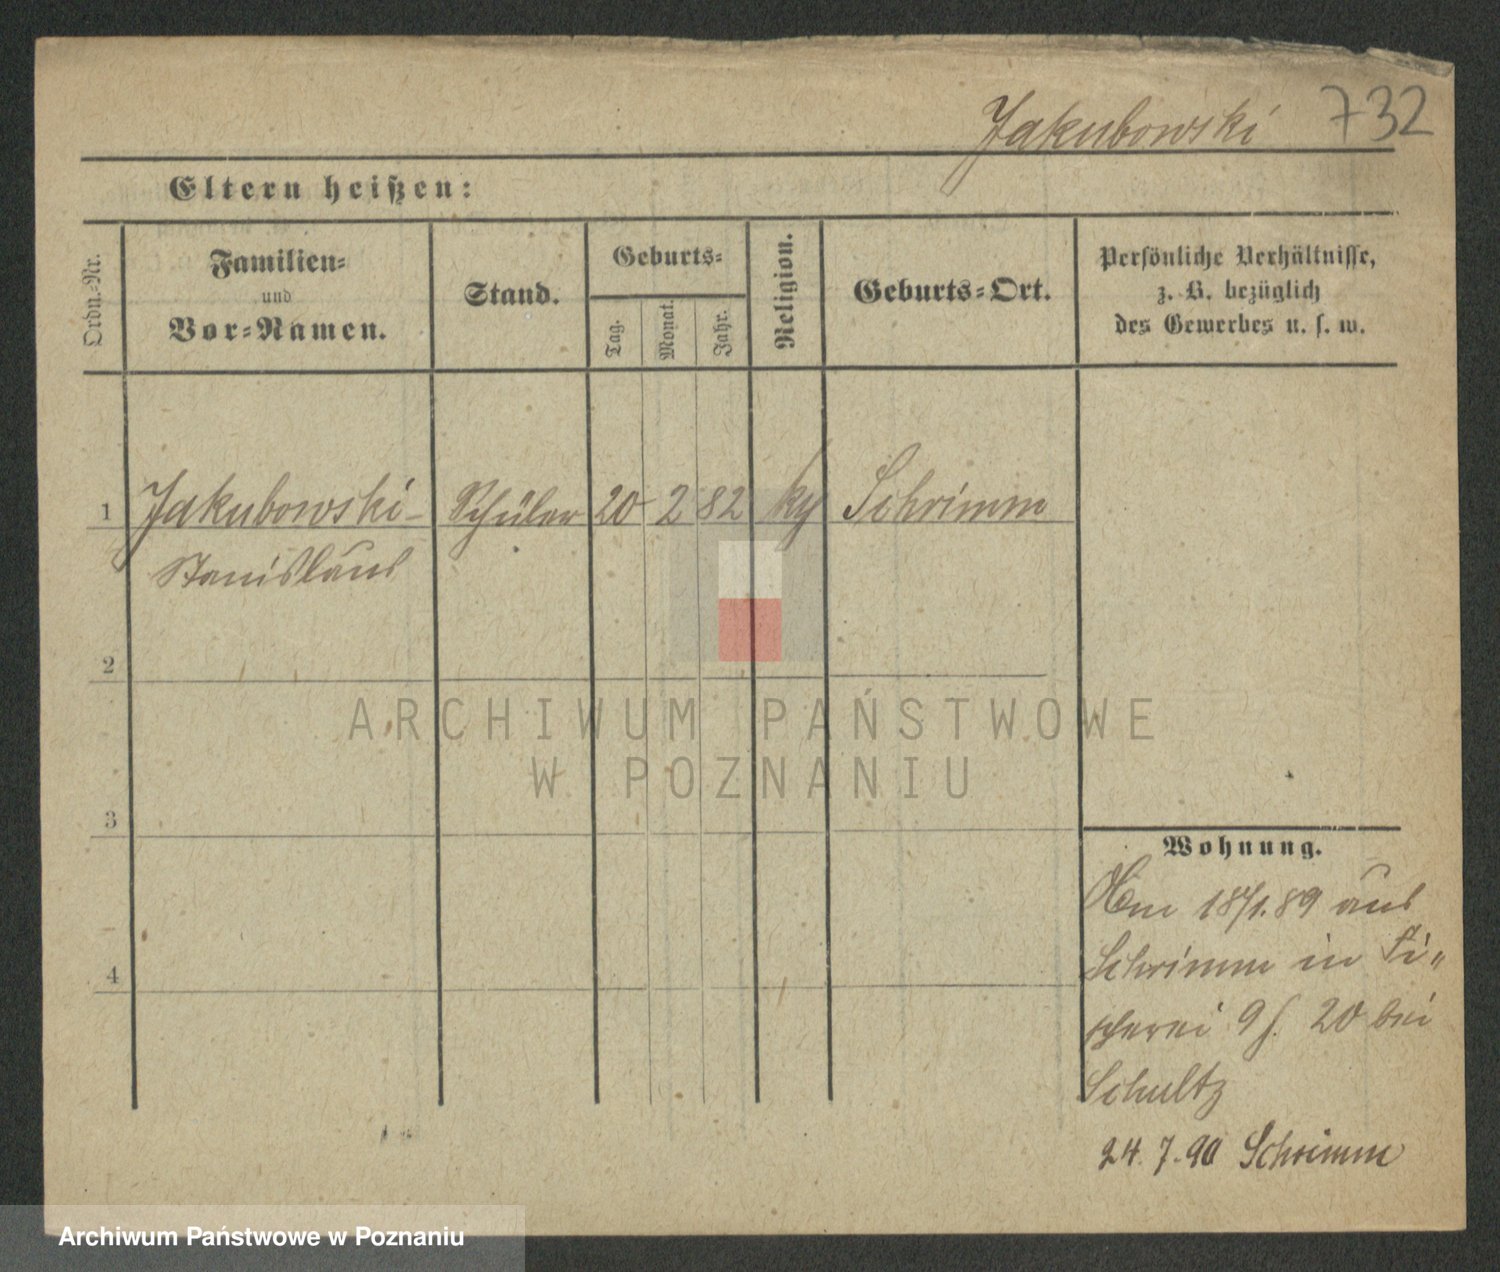 Jakubowski 732
Eltern heißen:
Ordn.-Nr.
Familien-
und
Vor-Namen.
Stand.
Geburts-
Tag.
Monat.
Jahr.
Religion.
Geburts-Ort.
Persönliche Verhältnisse,
z. B. bezüglich
des Gewerbes u. s. w.
1 Jakubowski Schüler 20 2 82 Schrimm
Stanislaus
2
3
4
Wohnung.
18/1.89 aus
Schrimm in Fi-
scherei 9 20 bei
Schultz
24.7.90 Schrimm
ARCHIWUM PAŃSTWOWE
W POZNANIU
Archiwum Państwowe w Poznaniu